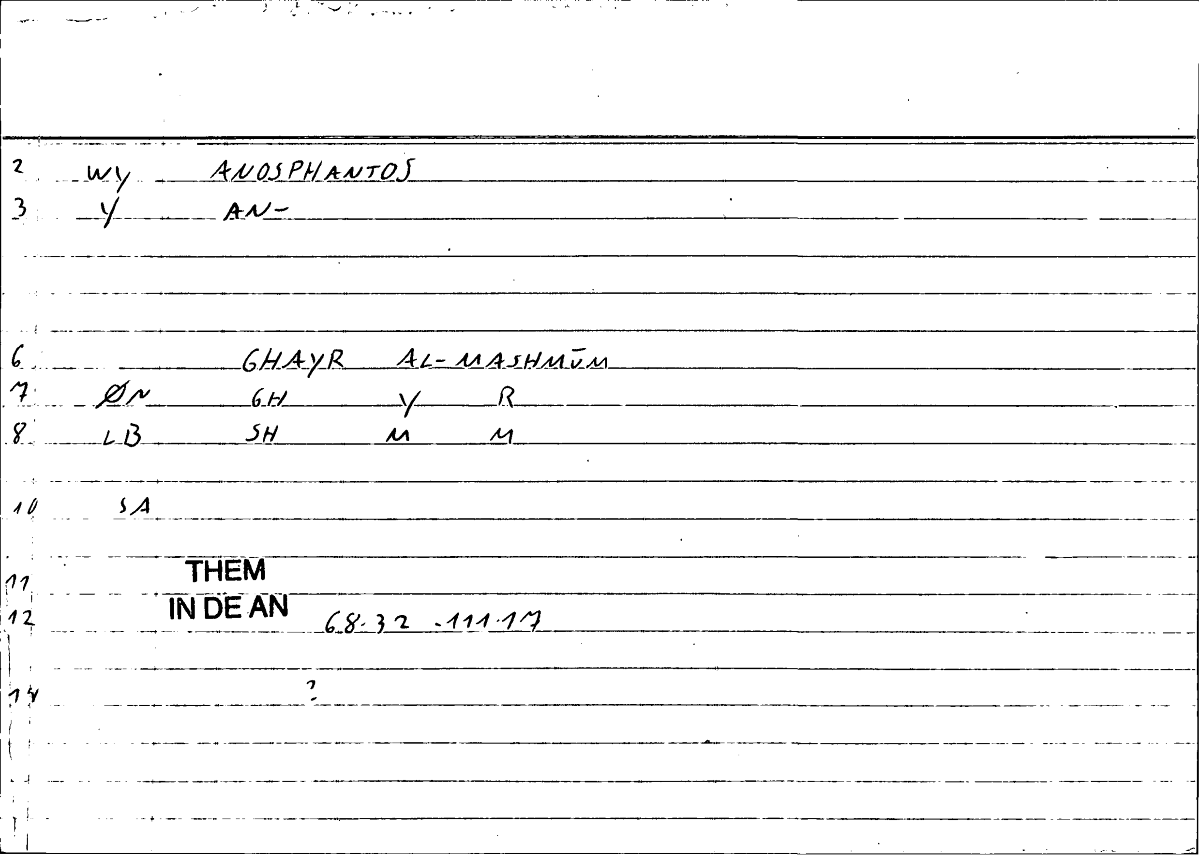 2 WY ANOSPHANTOS
3 Y AN-
6 GHAYR AL-MASHMŪM
7 ØN GH Y R
8 LB SH M M
10 SA
11 THEM
12 IN DE AN 68.32 .111.17
14 ?